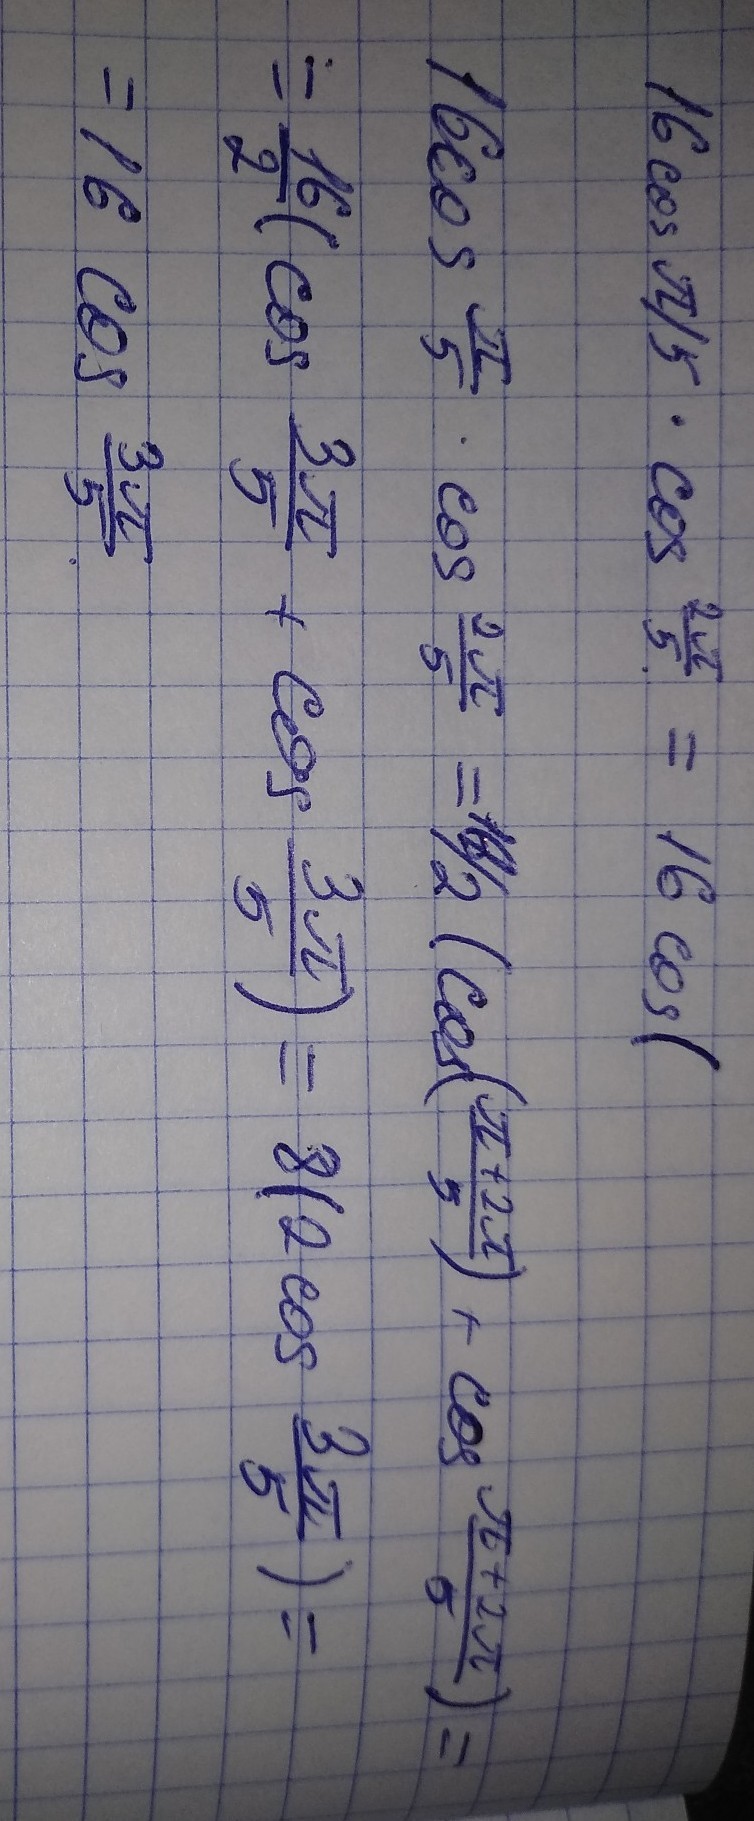 16 cos π/5 · cos 2π/5 = 16 cos(
16 cos π/5 · cos 2π/5 = 16/2 (cos(π+2π/5) + cos π+2π/5) =
= 16/2 (cos 3π/5 + cos 3π/5) = 8(2 cos 3π/5) =
= 16 cos 3π/5